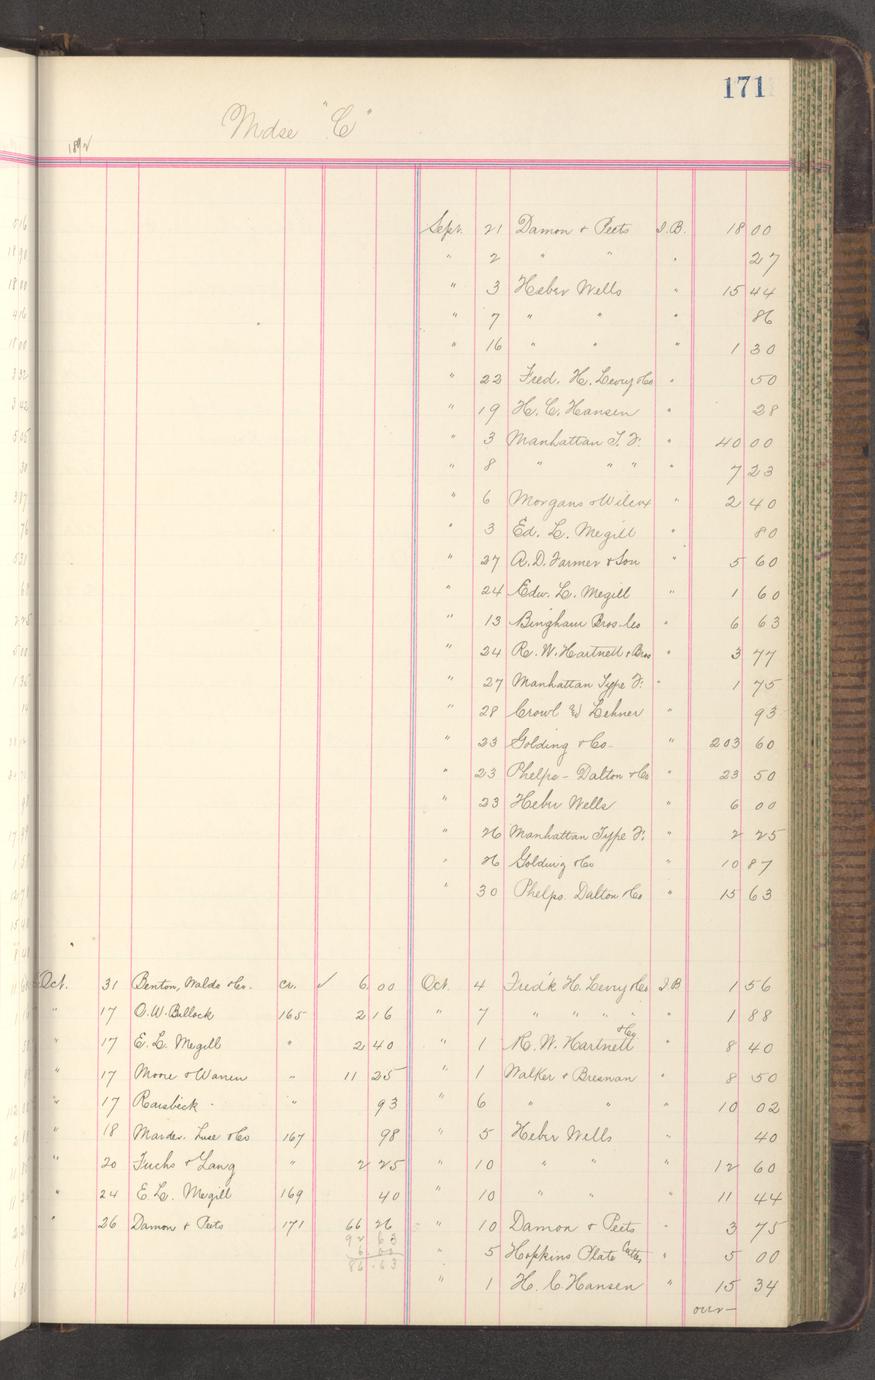 171
Mdse "C"
1892
Sept. 21 Damon & Peets I.B. 18 00
" 2 " " " 27
" 3 Heber Wells " 15 44
" 7 " " " 86
" 16 " " " 1 30
" 22 Fred. H. Levey & Co " 50
" 19 H. C. Hansen " 28
" 3 Manhattan T. F. " 40 00
" 8 " " " " 7 23
" 6 Morgans & Wilcox " 2 40
" 3 Ed. L. Megill " 80
" 27 A. D. Farmer & Son " 5 60
" 24 Edw. L. Megill " 1 60
" 13 Bingham Bros. Co " 6 63
" 24 R. W. Hartnett & Bros " 3 77
" 27 Manhattan Type F. " 1 75
" 28 Crowl & Lehner " 93
" 23 Golding & Co. " 203 60
" 23 Phelps - Dalton & Co " 23 50
" 23 Heber Wells " 6 00
" 26 Manhattan Type F. " 2 25
" 26 Golding & Co " 10 87
" 30 Phelps. Dalton & Co " 15 63
Oct. 31 Benton, Waldo & Co. cr. ✓ 6 00 Oct. 4 Fred'k H. Levey & Co I.B. 1 56
" 17 O. W. Bullock 165 2 16 " 7 " " " " 1 88
" 17 E. L. Megill " 2 40 " 1 R. W. Hartnett & Co " 8 40
" 17 Moore & Warren " 11 25 " 1 Walker & Bresnan " 8 50
" 17 Raisbeck " 93 " 6 " " " 10 02
" 18 Marder. Luse & Co 167 98 " 5 Heber Wells " 40
" 20 Fuchs & Lang " 2 25 " 10 " " " 12 60
" 24 E. L. Megill 169 40 " 10 " " " 11 44
" 26 Damon & Peets 171 66 26 " 10 Damon & Peets " 3 75
92 63
6.00 " 5 Hopkins Plate Cutter " 5 00
86.63
" 1 H. C. Hansen " 15 34
over